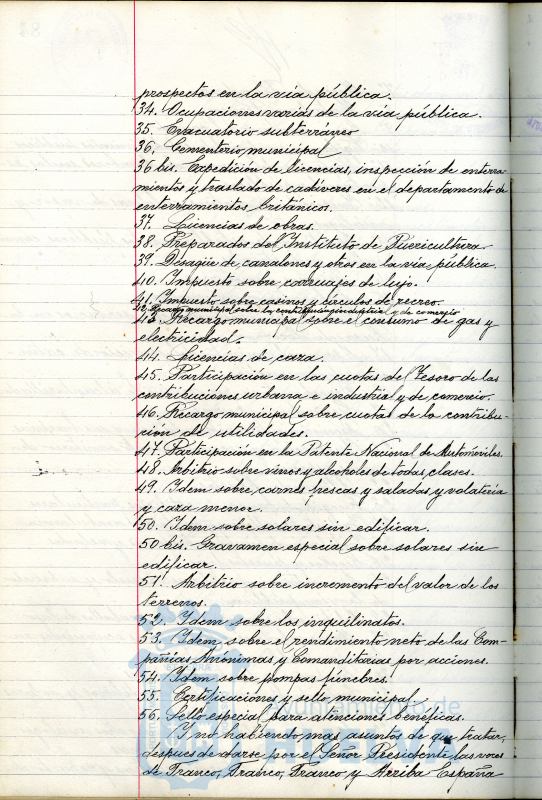 prospectos en la via pública.
34. Ocupaciones varias de la via pública.
35. Evacuatorio subterráneo
36. Cementerio municipal
36 bis. Expedición de licencias, inspección de enterra-
mientos y traslado de cadáveres en el departamento de
enterramientos británicos.
37. Licencias de obras.
38. Preparados del Instituto de Puericultura
39. Desagüe de canalones y otros en la via pública.
40. Impuesto sobre carruajes de lujo.
41. Impuesto sobre casinos y círculos de recreo.
42. Recargo municipal sobre la contribución industrial y de comercio
43. Recargo municipal sobre el consumo de gas y
electricidad.
44. Licencias de caza.
45. Participación en las cuotas del Tesoro de las
contribuciones urbana e industria y de comercio.
46. Recargo municipal sobre cuotas de la contribu-
ción de utilidades.
47. Participación en la Patente Nacional de Automóviles.
48. Arbitrio sobre vinos y alcoholes de todas clases.
49. Idem sobre carnes frescas y saladas y volatería
y caza menor.
50. Idem sobre solares sin edificar.
50 bis. Gravamen especial sobre solares sin
edificar.
51. Arbitrio sobre incremento del valor de los
terrenos.
52. Idem sobre los inquilinatos.
53. Idem sobre el rendimiento neto de las Com-
pañías Anónimas y Comanditarias por acciones.
54. Idem sobre pompas fúnebres.
55. Certificaciones y sello municipal
56. Sello especial para atenciones benéficas.
Y no habiendo mas asuntos de que tratar,
despues de darse por el Señor Presidente las voces
de Franco, Franco, Franco y Arriba España
ayuntamiento de